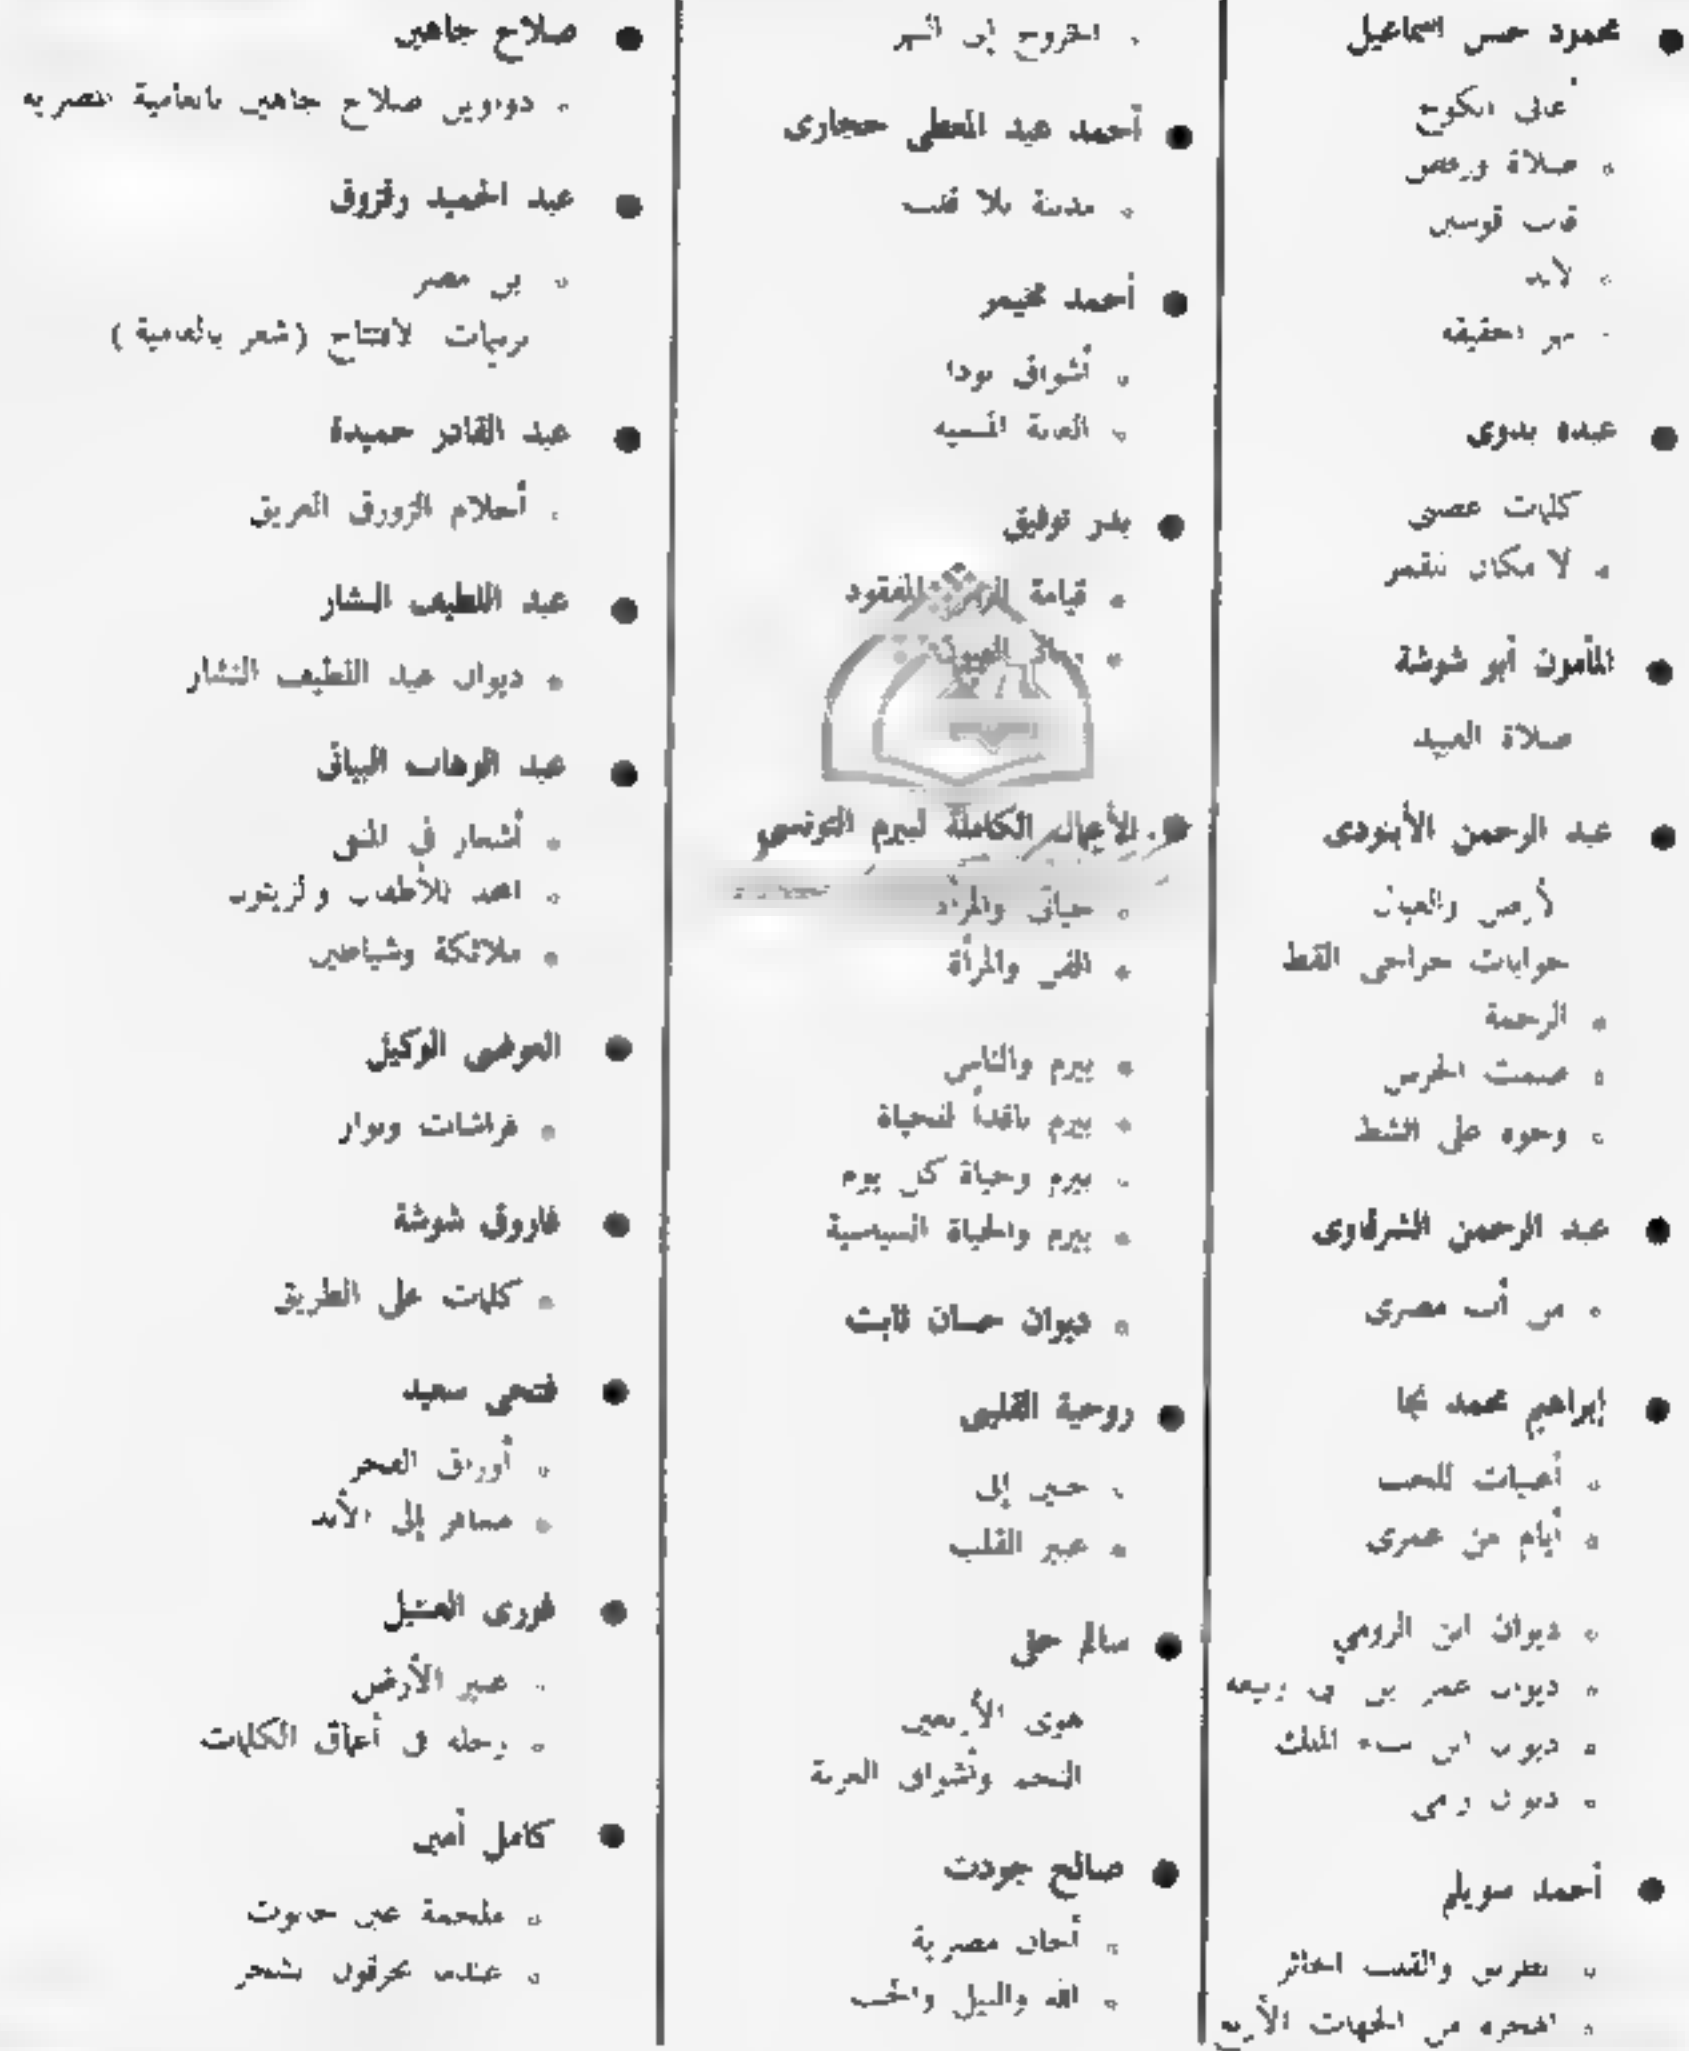 محمود حسن اسماعيل
أغانى الكوخ
صلاة ورفض
قاب قوسين
لابد
نهر الحقيقة
عبده بدوى
كلمات غضبى
لا مكان للقمر
المأمون أبو شوشة
صلاة العبيد
عبد الرحمن الأبنودى
الأرض والعيال
جوابات حراجى القط
الزحمة
صمت الجرس
وجوه على الشط
عبد الرحمن الشرقاوى
من أب مصرى
إبراهيم محمد نجا
أغنيات للحب
أيام من عمرى
ديوان ابن الرومي
ديوان عمر بن أبى ربيعة
ديوان ابن سناء الملك
ديوان رامى
أحمد سويلم
الطريق والقلب الحائر
الهجرة من الجهات الأربع
الخروج إلى النهر
أحمد عبد المعطى حجازى
مدينة بلا قلب
أحمد مخيمر
أشواق بوذا
الغابة المنسية
بدر توفيق
قيامة الزمن المفقود
رماد العيون
الأعمال الكاملة لبيرم التونسى
حياتى والمرأة
الفن والمرأة
بيرم والناس
بيرم ناقداً للحياة
بيرم وحياة كل يوم
بيرم والحياة السياسية
ديوان حسان ثابت
روحية القلينى
حنين إلى
عبير القلب
سالم حقى
هوى الأربعين
النجم وأشواق الغربة
صالح جودت
ألحان مصرية
الله والنيل والحب
صلاح جاهين
دواوين صلاح جاهين بالعامية المصرية
عبد الحميد زقزوق
بن مصر
ترنيمات الافتتاح (شعر بالعامية)
عبد القادر حميدة
أحلام الزورق الغريق
عبد اللطيف النشار
ديوان عبد اللطيف النشار
عبد الوهاب البياتى
أشعار فى المنفى
المجد للأطفال والزيتون
ملائكة وشياطين
العوضى الوكيل
فراشات ونوار
فاروق شوشة
كلمات على الطريق
فتحى سعيد
أوراق الفجر
مسافر إلى الأبد
فوزى العنتيل
عبير الأرض
رحلة فى أعماق الكلمات
كامل أمين
ملحمة عين جالوت
عندما يحرقون الشجر